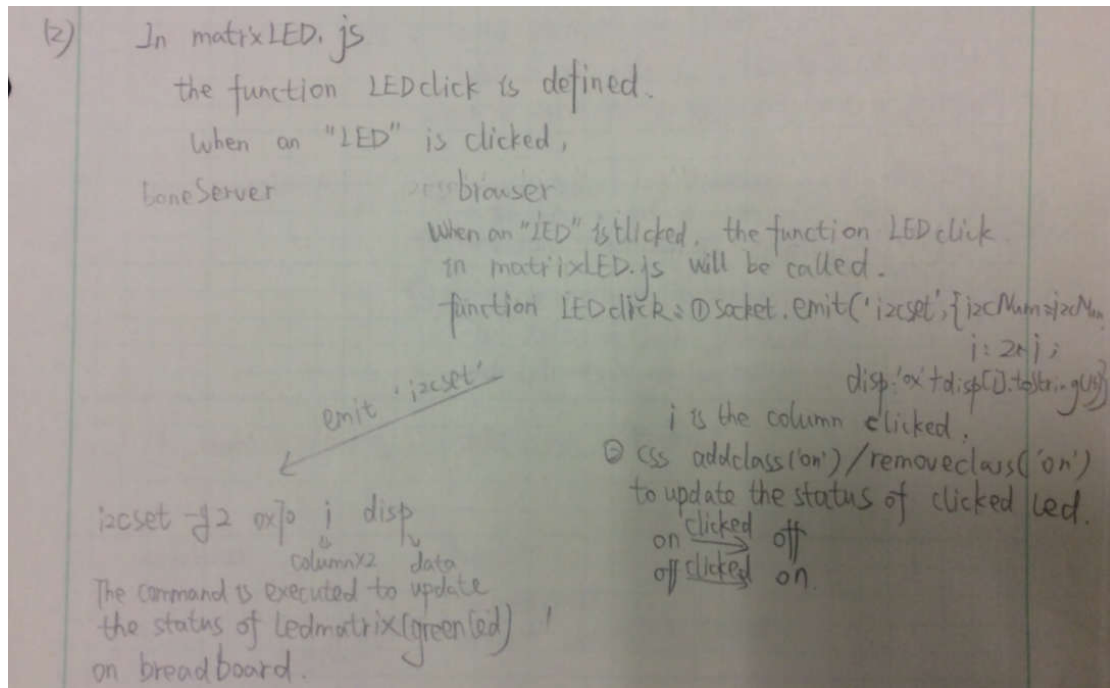 (2) In matrixLED.js
the function LEDclick is defined.
When an "LED" is clicked,
boneServer browser
When an "LED" is clicked, the function LEDclick
in matrixLED.js will be called.
function LEDclick: ① socket.emit('i2cset', {i2cNum: i2cNum,
i: 2*i;
disp: '0x' + disp[i].toString(16)}
i is the column clicked.
② css addclass('on')/removeclass('on')
to update the status of clicked led.
on clicked off
off clicked on.
emit 'i2cset'
i2cset -y 2 0x70 i disp
column×2 data
The command is executed to update
the status of ledmatrix(green led)
on breadboard.